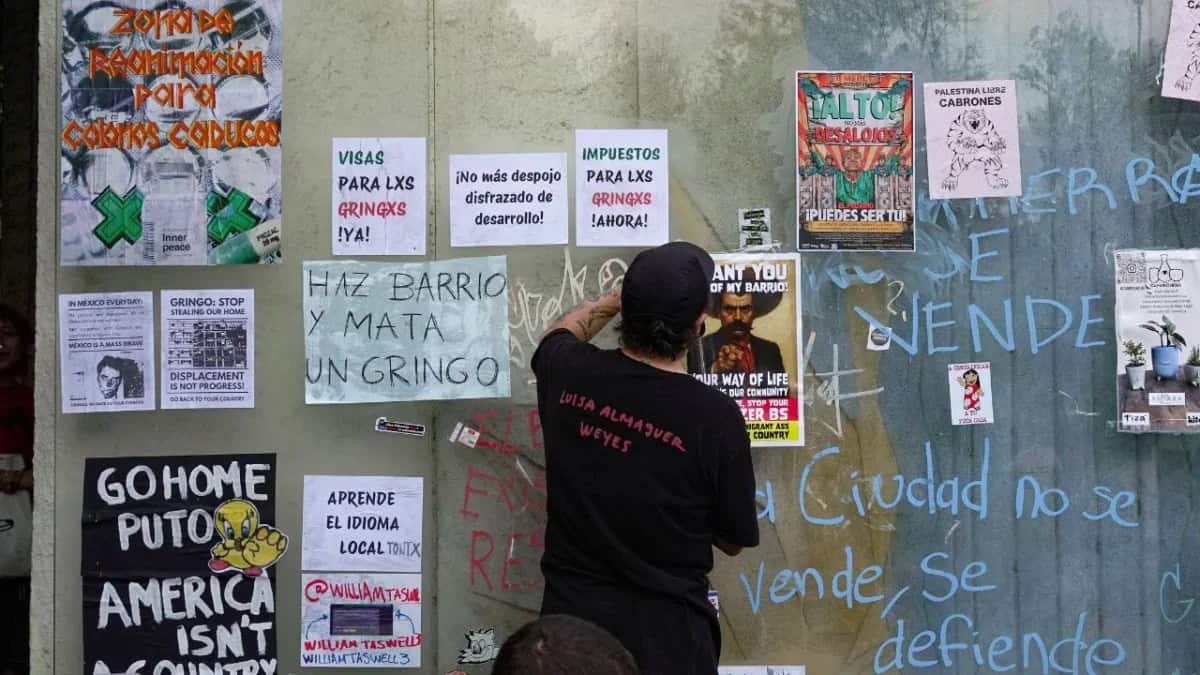 ZONA DE
REANIMACIÓN
PARA
COLONOS CADUCOS
Inner
peace
VISAS
PARA LXS
GRINGXS
!YA!
¡No más despojo
disfrazado de
desarrollo!
IMPUESTOS
PARA LXS
GRINGXS
!AHORA!
¡ALTO!
DESALOJOS
¡PUEDES SER TU!
PALESTINA LIBRE
CABRONES
SE
VENDE
IN MÉXICO EVERYDAY:
MÉXICO IS A MASS GRAVE
GRINGO: STOP
STEALING OUR HOME
DISPLACEMENT
IS NOT PROGRESS!
GO BACK TO YOUR COUNTRY
HAZ BARRIO
Y MATA
UN GRINGO
ANT YOU
OF MY BARRIO!
OUR WAY OF LIFE
OUR COMMUNITY
STOP YOUR
ZER BS
MIGRANT ASS
COUNTRY
LUISA ALMAGUER
WEYES
A TU
TIZA
GO HOME
PUTO
AMERICA
ISN'T
A COUNTRY
APRENDE
EL IDIOMA
LOCAL TONTX
@WILLIAMTAS
WILLIAM TASWELL3
WILLIAMTASWELL3
a Ciudad no se
vende, se
defiende